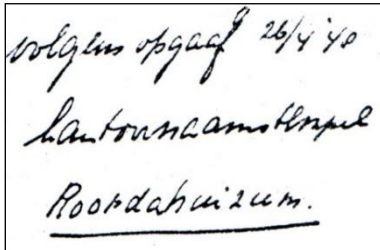 volgens opgaaf 26/4 '40
kantoornaamstempel
Roordahuizum.